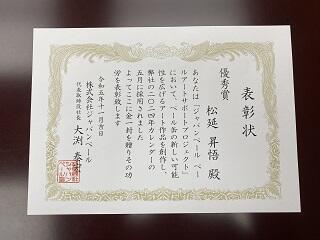 表彰状
優秀賞
松延 昇悟 殿
あなたは「ジャパンペール ペー
ルアートサポートプロジェクト」
において、ペール缶の新しい可能
性を広げるアート作品を創作し、
弊社の二〇二四年カレンダーの
五月に採用されました
よってここに金一封を贈りその功
労を表彰致します
令和五年十一月吉日
株式会社ジャパンペール
代表取締役社長 大渕